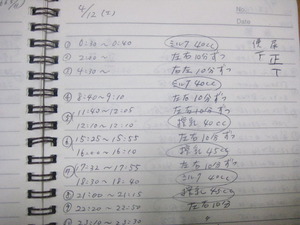 4/12 (土)
No.
Date
便 尿
① 0:30 ~ 0:40 ミルク 40cc 下 正
② 2:00 ~ 左右10分ずつ 丅
③ 4:30 ~ 右左10分ずつ
ミルク 40cc
④ 8:40 ~ 9:10 左右10分ずつ
⑤ 11:40 ~ 12:05 左右10分ずつ
12:10 ~ 12:10 搾乳 40cc
⑥ 15:25 ~ 15:55 左右10分ずつ
16:00 ~ 16:10 搾乳 45cc
⑦ 17:32 ~ 17:55 左右10分ずつ
18:30 ~ 18:40 ミルク 40cc
⑧ 21:00 ~ 21:15 搾乳 45cc
⑨ 22:20 ~ 22:50 左右10分
23:10 ~ 23:30 〃